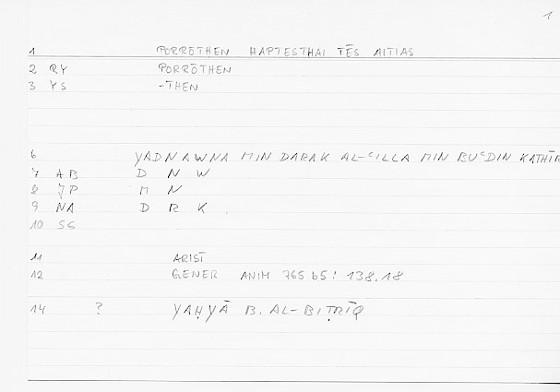 1
1 PORRŌTHEN HAPTESTHAI TĒS AITIAS
2 RY PORRŌTHEN
3 YS -THEN
6 YADNAWNA MIN DARAK AL-ʿILLA MIN BUʿDIN KATHĪR
7 AB D N W
8 JP M N
9 NA D R K
10 SS
11 ARIST
12 GENER ANIM 765 b5: 138.18
14 ? YAḤYĀ B. AL-BIṬRĪQ